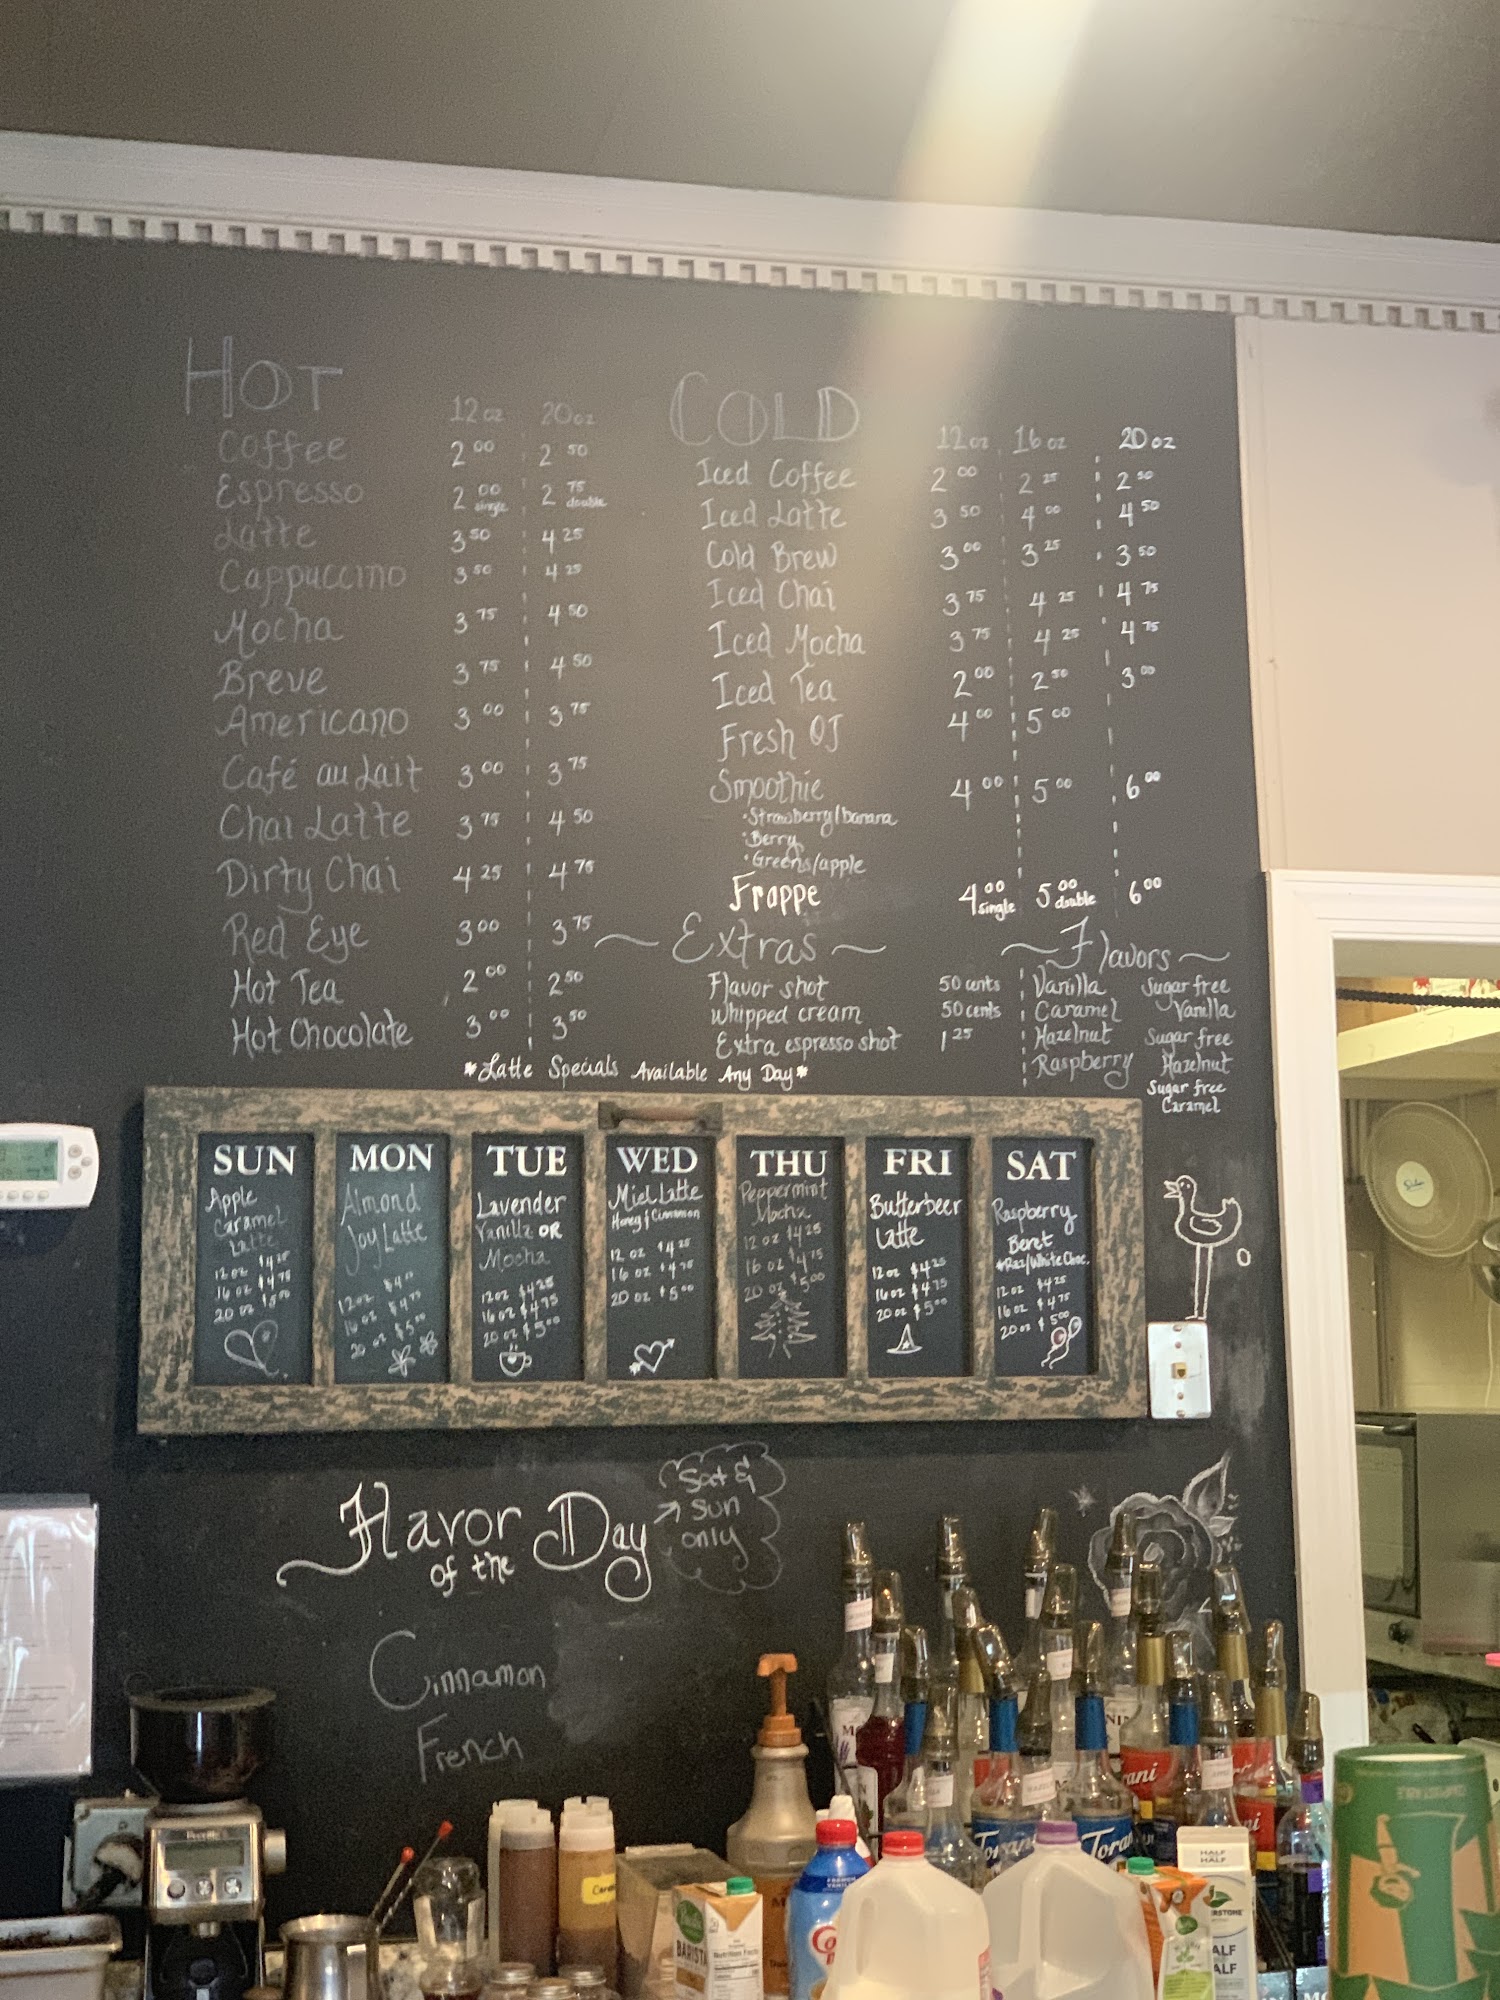 HOT
12oz 20oz
Coffee 2 00 2 50
Espresso 2 00 single 2 75 double
Latte 3 50 4 25
Cappuccino 3 50 4 25
Mocha 3 75 4 50
Breve 3 75 4 50
Americano 3 00 3 75
Café au Lait 3 00 3 75
Chai Latte 3 75 4 50
Dirty Chai 4 25 4 75
Red Eye 3 00 3 75
Hot Tea 2 00 2 50
Hot Chocolate 3 00 3 50
COLD
12oz 16oz 20oz
Iced Coffee 2 00 2 25 2 50
Iced Latte 3 50 4 00 4 50
Cold Brew 3 00 3 25 3 50
Iced Chai 3 75 4 25 4 75
Iced Mocha 3 75 4 25 4 75
Iced Tea 2 00 2 50 3 00
Fresh OJ 4 00 5 00
Smoothie 4 00 5 00 6 00
·Strawberry/banana
·Berry
·Greens/apple
Frappe 4 00 single 5 00 double 6 00
~ Extras ~
Flavor shot 50 cents
Whipped cream 50 cents
Extra espresso shot 1 25
~ Flavors ~
Vanilla
Caramel
Hazelnut
Raspberry
Sugar free
Vanilla
Sugar free
Hazelnut
Sugar free
Caramel
*Latte Specials Available Any Day*
SUN
Apple
Caramel
Latte
12 oz $4 25
16 oz $4 75
20 oz $5 00
MON
Almond
Joy Latte
12 oz
16 oz
20 oz $5 00
TUE
Lavender
Vanilla OR
Mocha
12oz $4 25
16oz $4 75
20 oz $5 00
WED
Miel Latte
Honey & Cinnamon
12 oz $4 25
16 oz $4 75
20 oz $5 00
THU
Peppermint
Mocha
12 oz $4 25
16 oz $4 75
20 oz $5 00
FRI
Butterbeer
Latte
12 oz $4 25
16oz $4 75
20oz $5 00
SAT
Raspberry
Beret
*Raz/White Choc.
12 oz $4 25
16 oz $4 75
20 oz $5 00
Flavor
of the
Day
Sat &
Sun
only
Cinnamon
French
Torani
Torani
BARISTA
HALF
HALF